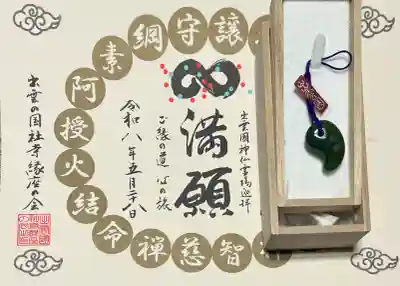 出雲國神仏霊場巡拝
満願
ご縁の道 心の旅
令和八年五月二十八日
出雲の国社寺縁座の会
譲
守
綱
素
阿
授
火
結
命
禅
慈
智